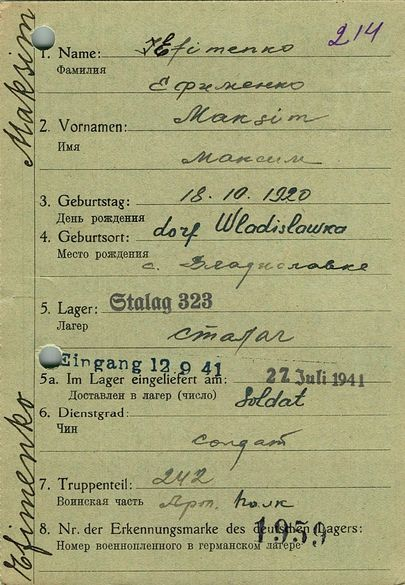 Maksim
Efimenko
214
1. Name: Efimenko
Фамилия
Ефименко
2. Vornamen: Maksim
Имя
Максим
3. Geburtstag: 18.10.1920
День рождения
4. Geburtsort: dorf Wladislawka
Место рождения
с. Владиславке
5. Lager: Stalag 323
Лагер
сталаг
Eingang 12 9 41
5a. Im Lager eingeliefert am: 22 Juli 1941
Доставлен в лагер (число)
6. Dienstgrad: Soldat
Чин
солдат
7. Truppenteil: 242
Воинская часть Арт. Полк
8. Nr. der Erkennungsmarke des deutschen Lagers:
1959
Номер военнопленного в германском лагере